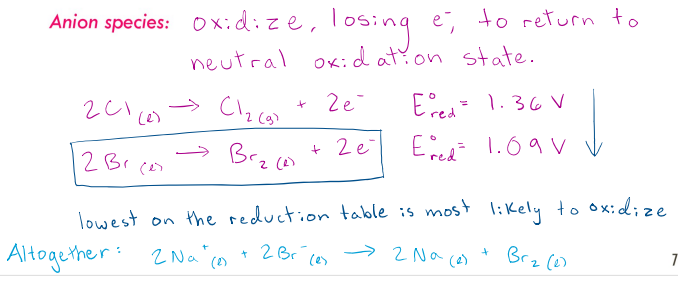 Anion species: oxidize, losing e⁻, to return to
neutral oxidation state.
2Cl (l) → Cl₂ (g) + 2e⁻ E°red = 1.36 V
2Br (l) → Br₂ (l) + 2e⁻ E°red = 1.09 V
lowest on the reduction table is most likely to oxidize
Altogether: 2Na⁺ (l) + 2Br⁻ (l) → 2Na (l) + Br₂ (l)
7